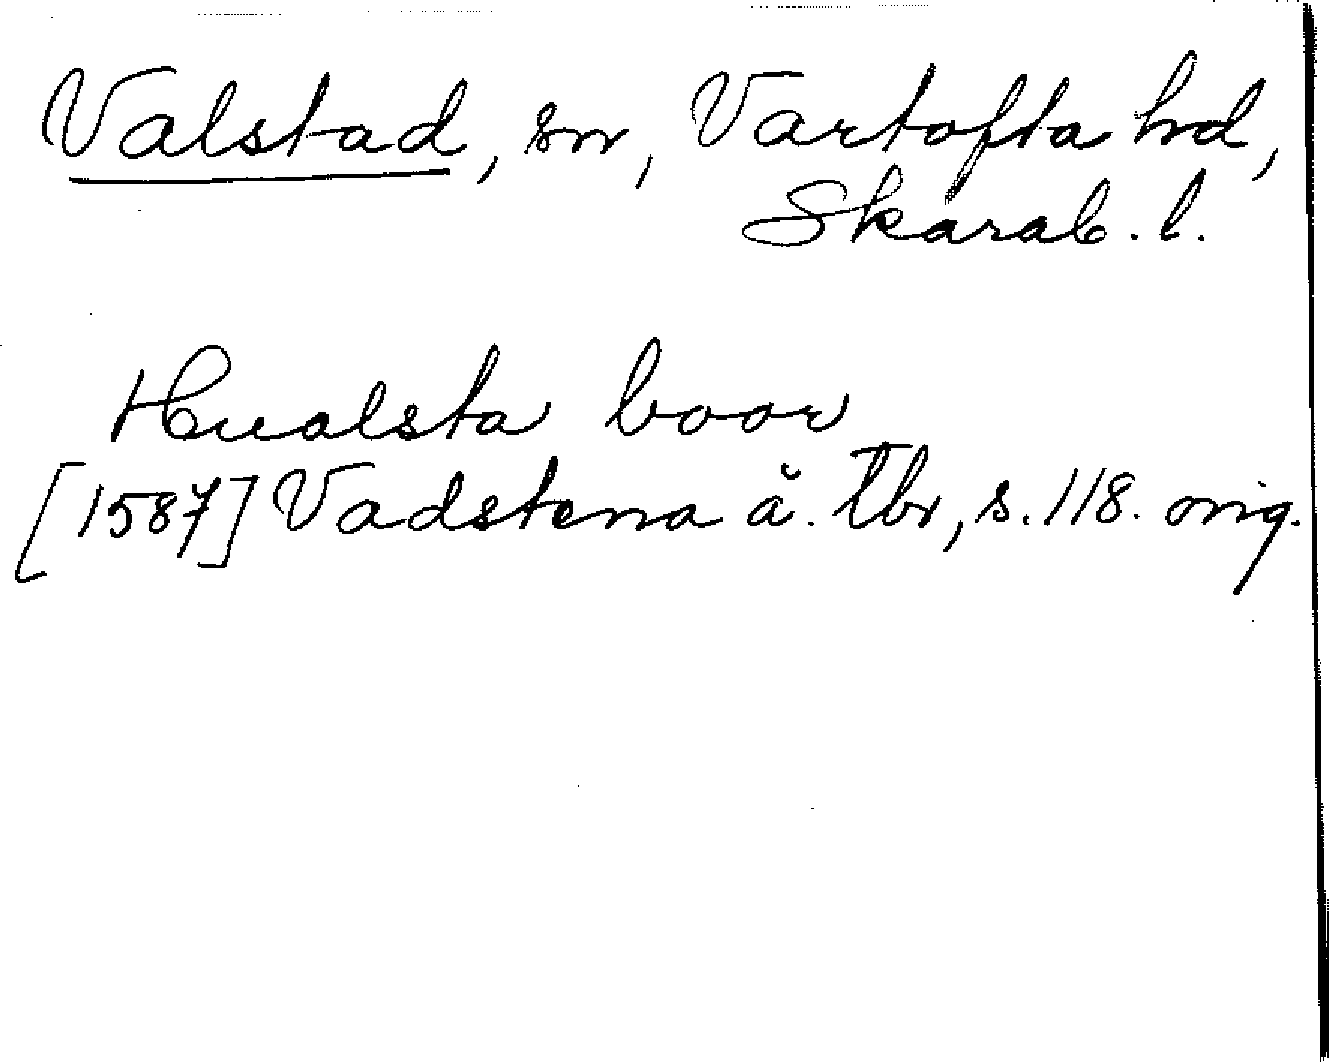 Valstad, sn, Vartofta hd,
Skarab. l.
Hualsta boar
[1587] Vadstena ä. tbr, s. 118. orig.